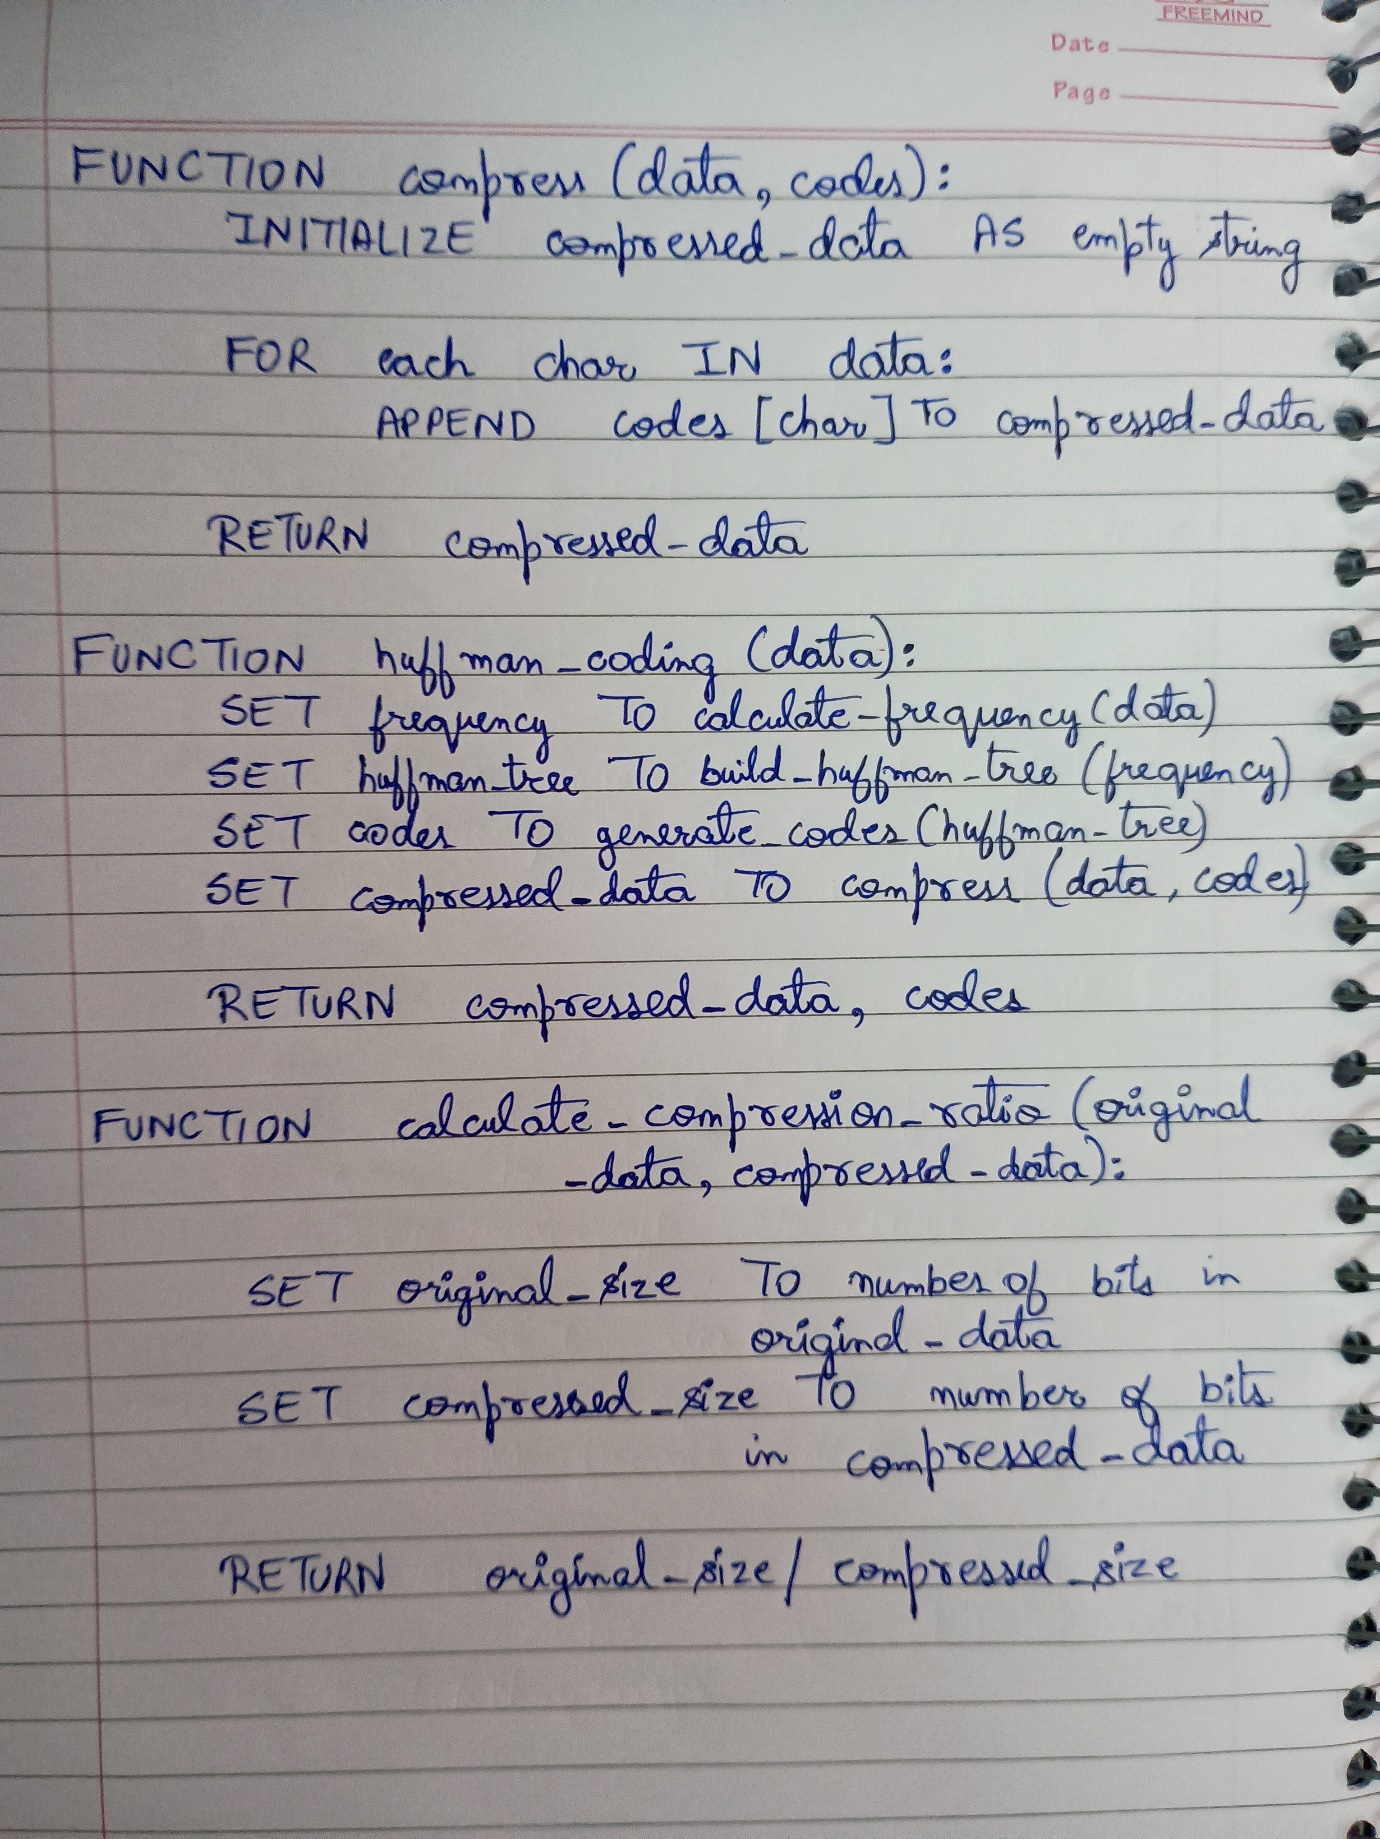 FREEMIND
Date
Page
FUNCTION compress (data, codes):
INITIALIZE compressed_data AS empty string
FOR each char IN data:
APPEND codes [char] TO compressed_data
RETURN compressed_data
FUNCTION huffman_coding (data):
SET frequency TO calculate_frequency (data)
SET huffman_tree TO build_huffman_tree (frequency)
SET codes TO generate_codes (huffman_tree)
SET compressed_data TO compress (data, codes)
RETURN compressed_data, codes
FUNCTION calculate_compression_ratio (original
_data, compressed_data):
SET original_size TO number of bits in
original_data
SET compressed_size TO number of bits
in compressed_data
RETURN original_size / compressed_size